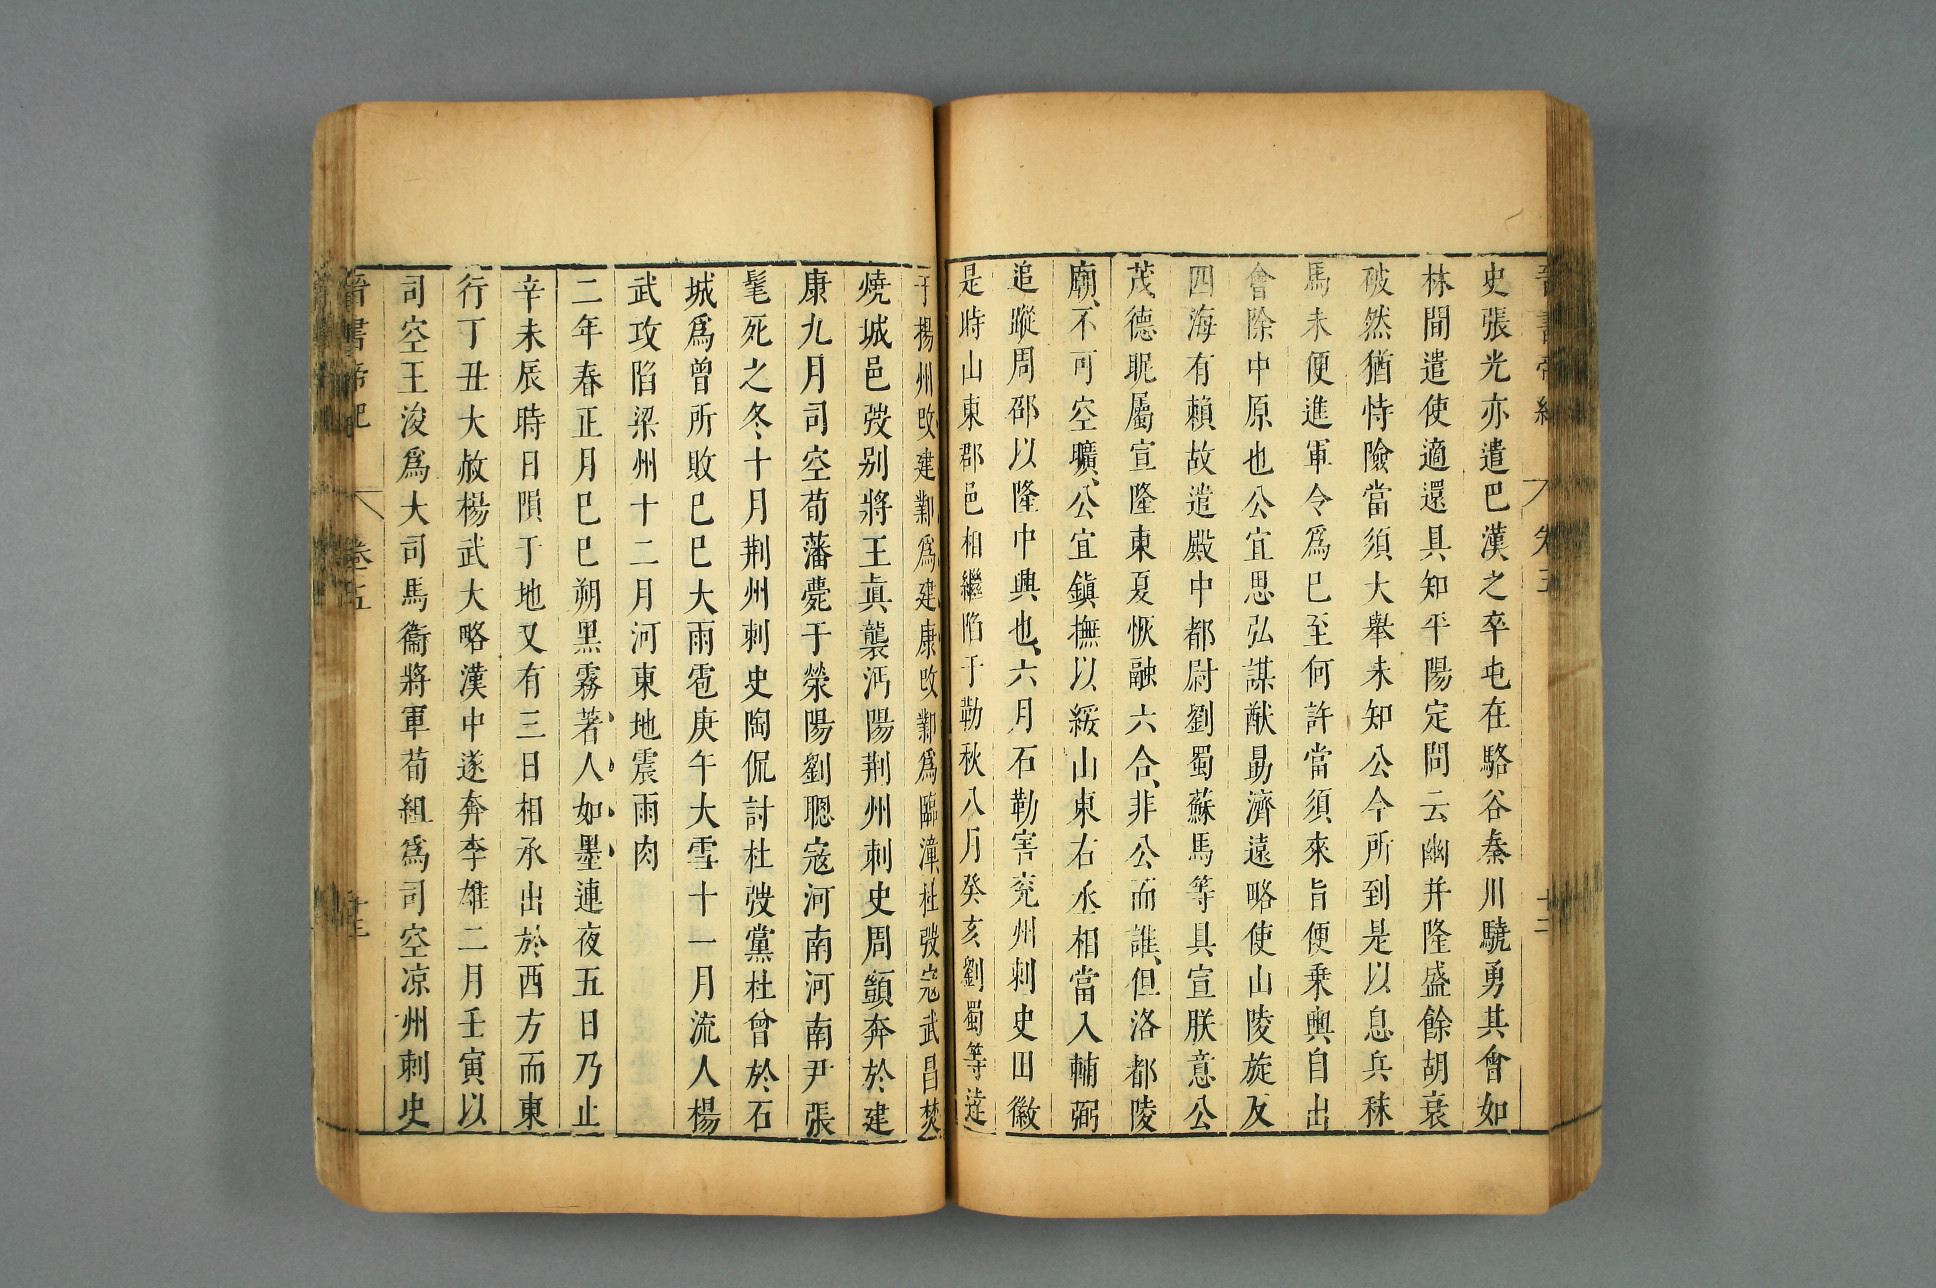 晉書帝紀 卷五 十三
史張光亦遣巴漢之卒屯在駱谷秦川驍勇其會如
林間遣使適還具知平陽定問云幽并隆盛餘胡衰
破然猶恃險當須大舉未知公今所到是以息兵秣
馬未便進軍令爲巳至何許當須來旨便乗輿自出
會除中原也公宜思弘謀猷勗濟遠略使山陵旋反
四海有賴故遣殿中都尉劉蜀蘇馬等具宣朕意公
茂德昵屬宣隆東夏恢融六合非公而誰但洛都陵
廟不可空曠公宜鎭撫以綏山東右丞相當入輔弼
追蹤周邵以隆中興也六月石勒害兖州刺史田徽
是時山東郡邑相繼陷于勒秋八月癸亥劉蜀等達
于楊州攺建鄴爲建康攺鄴爲臨漳杜弢寇武昌焚
燒城邑弢别將王眞襲沔陽荆州刺史周顗奔於建
康九月司空荀藩薨于滎陽劉聰寇河南河南尹張
髦死之冬十月荆州刺史陶侃討杜弢黨杜曾於石
城爲曾所敗巳巳大雨雹庚午大雪十一月流人楊
武攻陷梁州十二月河東地震雨肉
二年春正月巳巳朔黒霧著人如墨連夜五日乃止
辛未辰時日隕于地又有三日相承出於西方而東
行丁丑大赦楊武大略漢中遂奔李雄二月壬寅以
司空王浚爲大司馬衞將軍荀組爲司空凉州刺史
晉書帝紀 卷五 十三